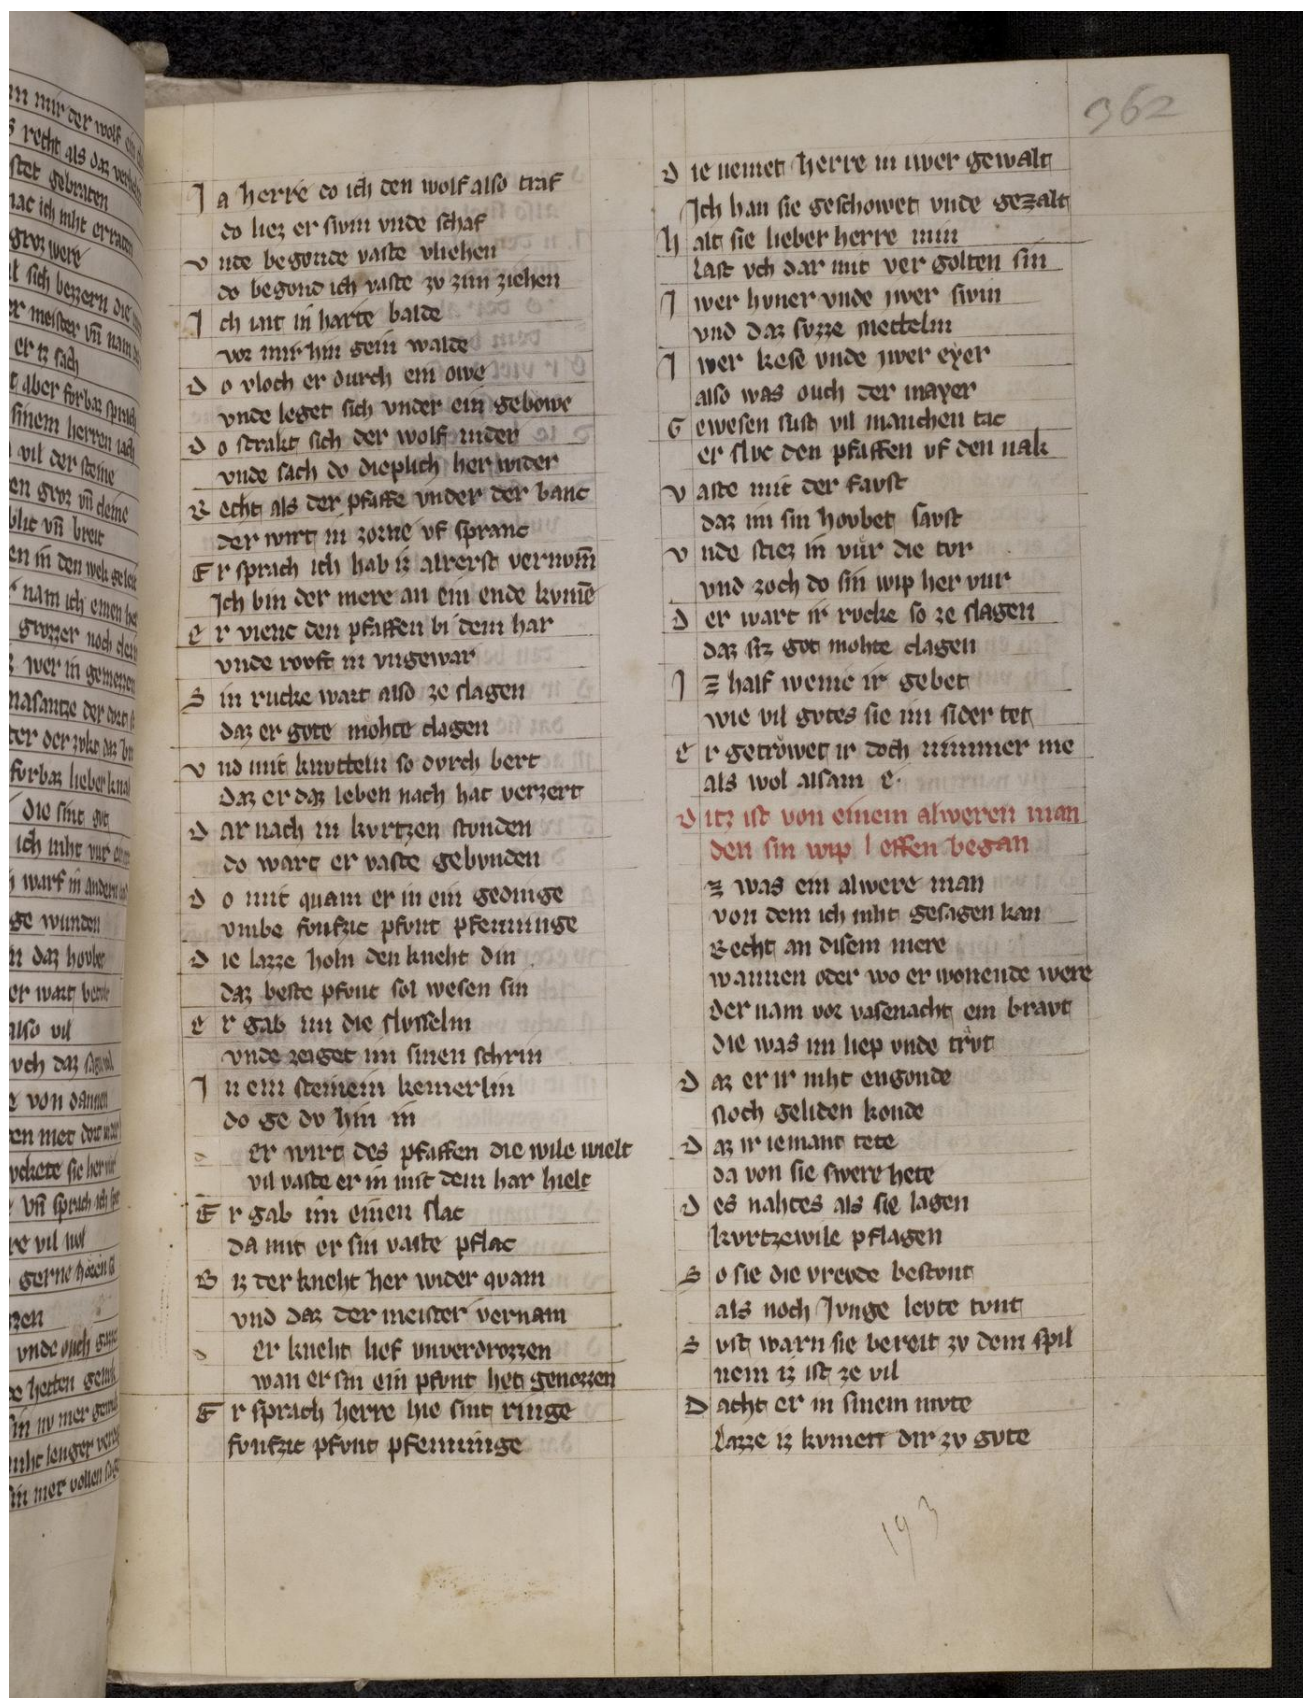 362
Ja herre do ich den wolf also traf
do liez er swin vnde schaf
vnde begonde vaste vliehen
do begond ich vaste zv zim ziehen
Ich tnt in harte balde
vor mir hin gein walde
Do vloch er durch ein owe
vnde leget sich vnder ein gebowe
Do strakt sich der wolf nider
vnde sach do dieplich her wider
Recht als der pfaffe vnder der banc
der wirt in zorne vf spranc
Er sprach ich hab iz alrerst vernvm̄
Ich bin der mere an ein ende kvmē
er vienc den pfaffen bi dem har
vnde rovft in vngewar
Sin rucke wart also ze slagen
daz er gote mohte clagen
vnd mit knvtteln so dvrch bert
daz er daz leben nach hat verzert
Dar nach in kvrtzen stvnden
do wart er vaste gebvnden
Do mit quam er in ein gedinge
vmbe fonfzic pfvnt pfenninge
Die lazze holn den kneht din
daz beste pfvnt sol wesen sin
er gab im die slvsselin
vnde zeiget im sinen schrin
In ein steinein kemerlin
do ge dv hin in
der wirt des pfaffen die wile wielt
vil vaste er in mit dem har hielt
Er gab im einen slac
da mit er sin vaste pflac
Biz der kneht her wider qvam
vnd daz der meister vernam
der kneht lief vnverdrozzen
wan er sin ein pfvnt het genozzen
Er sprach herre hie sint ringe
fonfzic pfvnt pfenninge
Die nemet herre in iwer gewalt
Ich han sie geschowet vnde gezalt
halt sie lieber herre min
Last vch dar mit ver golten sin
Iwer hvner vnde iwer swin
vnd daz svzze mettelin
Iwer kese vnde iwer eyer
also was ouch der mayer
Gewesen sust vil manchen tac
er slvc den pfaffen vf den nak
vaste mit der favst
daz im sin hovbet savst
vnde stiez in vůr die tvr
vnd zoch do sin wip her vur
der wart ir rvcke so ze slagen
daz siz got mohte clagen
Iz half wenic ir gebet
wie vil gvtes sie im sider tet
er getrowet ir doch nimmer me
als wol alsam e.
Ditz ist von einem alweren man
den sin wip effen began
Ez was ein alwere man
von dem ich niht gesagen kan
Recht an disem mere
wannen oder wo er wonende were
der nam vor vasenacht ein bravt
die was im liep vnde trvt
Daz er ir niht engonde
noch geliden konde
Daz ir iemant tete
da von sie swere hete
Des nahtes als sie lagen
kvrtzewile pflagen
So sie die vrevde bestvnt
als noch Jvnge levte tvnt
Svst warn sie bereit zv dem spil
nein iz ist ze vil
Dacht er in sinem mvte
Lazze iz kvmen dir zv gvte
193